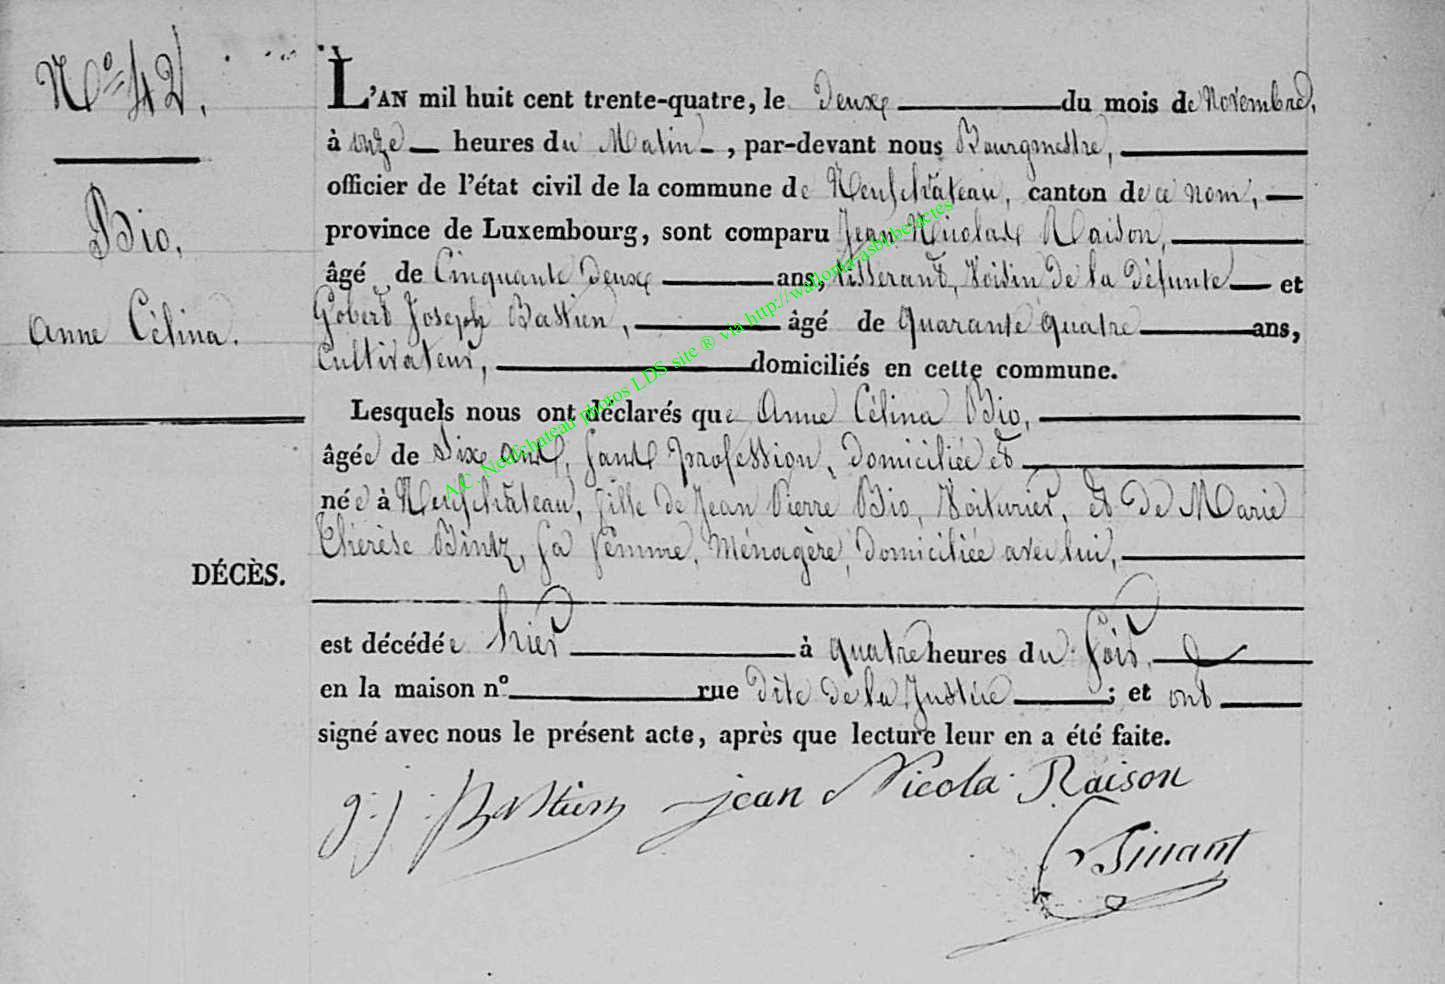 N° 42.
Bio,
Anne Célina.
DÉCÈS.
L'AN mil huit cent trente-quatre, le deux du mois de Novembre,
à onze heures du Matin, par-devant nous Bourgmestre,
officier de l'état civil de la commune de Neufchâteau, canton de ce nom,
province de Luxembourg, sont comparu Jean Nicolas Raison,
âgé de Cinquante deux ans, tisserand, Voisin de la défunte et
Gobert Joseph Bastien, âgé de Quarante quatre ans,
Cultivateur, domiciliés en cette commune.
Lesquels nous ont déclarés que Anne Célina Bio,
âgée de Six ans, sans profession, domiciliée et
née à Neufchâteau, fille de Jean Pierre Bio, Voiturier, et de Marie
Thérèse Bintz, sa femme, Ménagère, domiciliée avec lui,
est décédée hier à quatre heures du soir,
en la maison n° rue dite de la Justice ; et ont
signé avec nous le présent acte, après que lecture leur en a été faite.
g. j. Bastien jean Nicola Raison
A.C. Neufchateau photos LDS site ® via http://wallonia-asbl.be/actes